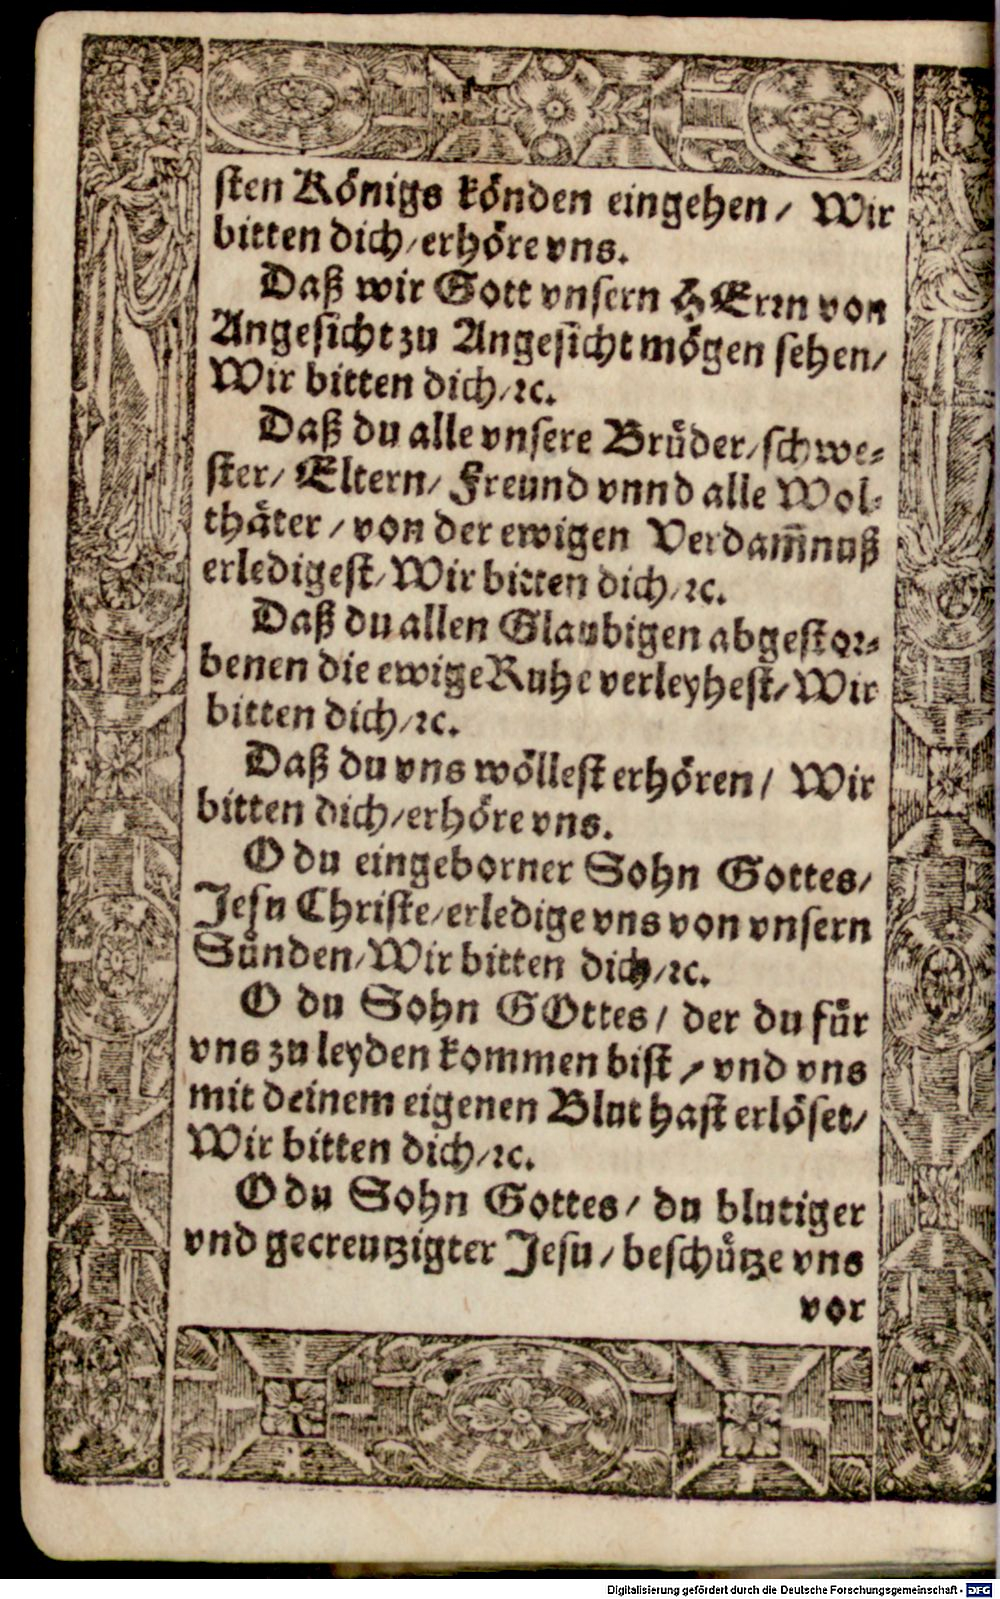 sten Königs könden eingehen / Wir
bitten dich / erhöre vns.
Daß wir Gott vnsern HErrn von
Angesicht zu Angesicht mögen sehen /
Wir bitten dich / ꝛc.
Daß du alle vnsere Brüder / schwe⸗
ster / Eltern / Freund vnnd alle Wol⸗
thäter / von der ewigen Verdam̄nuß
erledigest / Wir bitten dich / ꝛc.
Daß du allen Glaubigen abgestor⸗
benen die ewige Ruhe verleyhest / Wir
bitten dich / ꝛc.
Daß du vns wöllest erhören / Wir
bitten dich / erhöre vns.
O du eingeborner Sohn Gottes /
Jesu Christe / erledige vns von vnsern
Sünden / Wir bitten dich / ꝛc.
O du Sohn GOttes / der du für
vns zu leyden kommen bist / vnd vns
mit deinem eigenen Blut hast erlöset /
Wir bitten dich / ꝛc.
O du Sohn Gottes / du blutiger
vnd gecreutzigter Jesu / beschütze vns
vor
Digitalisierung gefördert durch die Deutsche Forschungsgemeinschaft - DFG